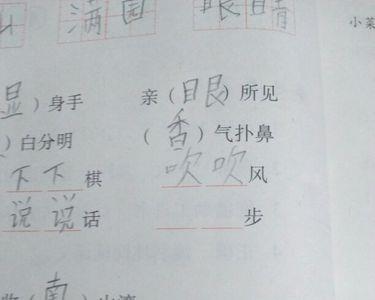 满园 眼睛
小菜
显）身手 亲（眼）所见
）白分明 （香）气扑鼻
下下棋 吹吹风
说说话 步
南